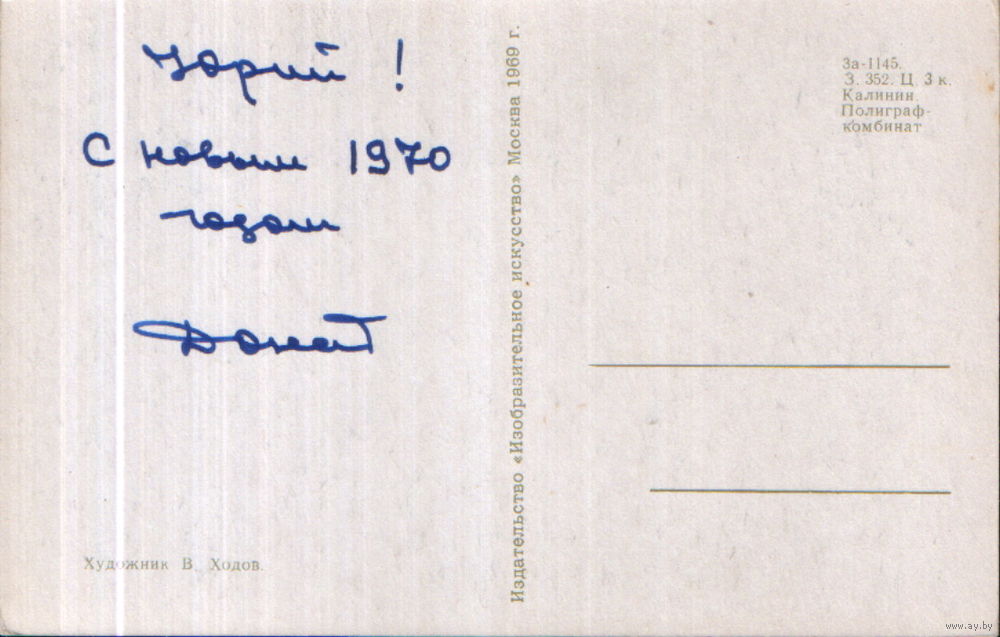 Юрий !
С новым 1970
годом
Донат
Художник В. Ходов.
Издательство «Изобразительное искусство» Москва 1969 г.
За-1145.
З. 352. Ц. 3 к.
Калинин.
Полиграф-
комбинат
www.ay.by